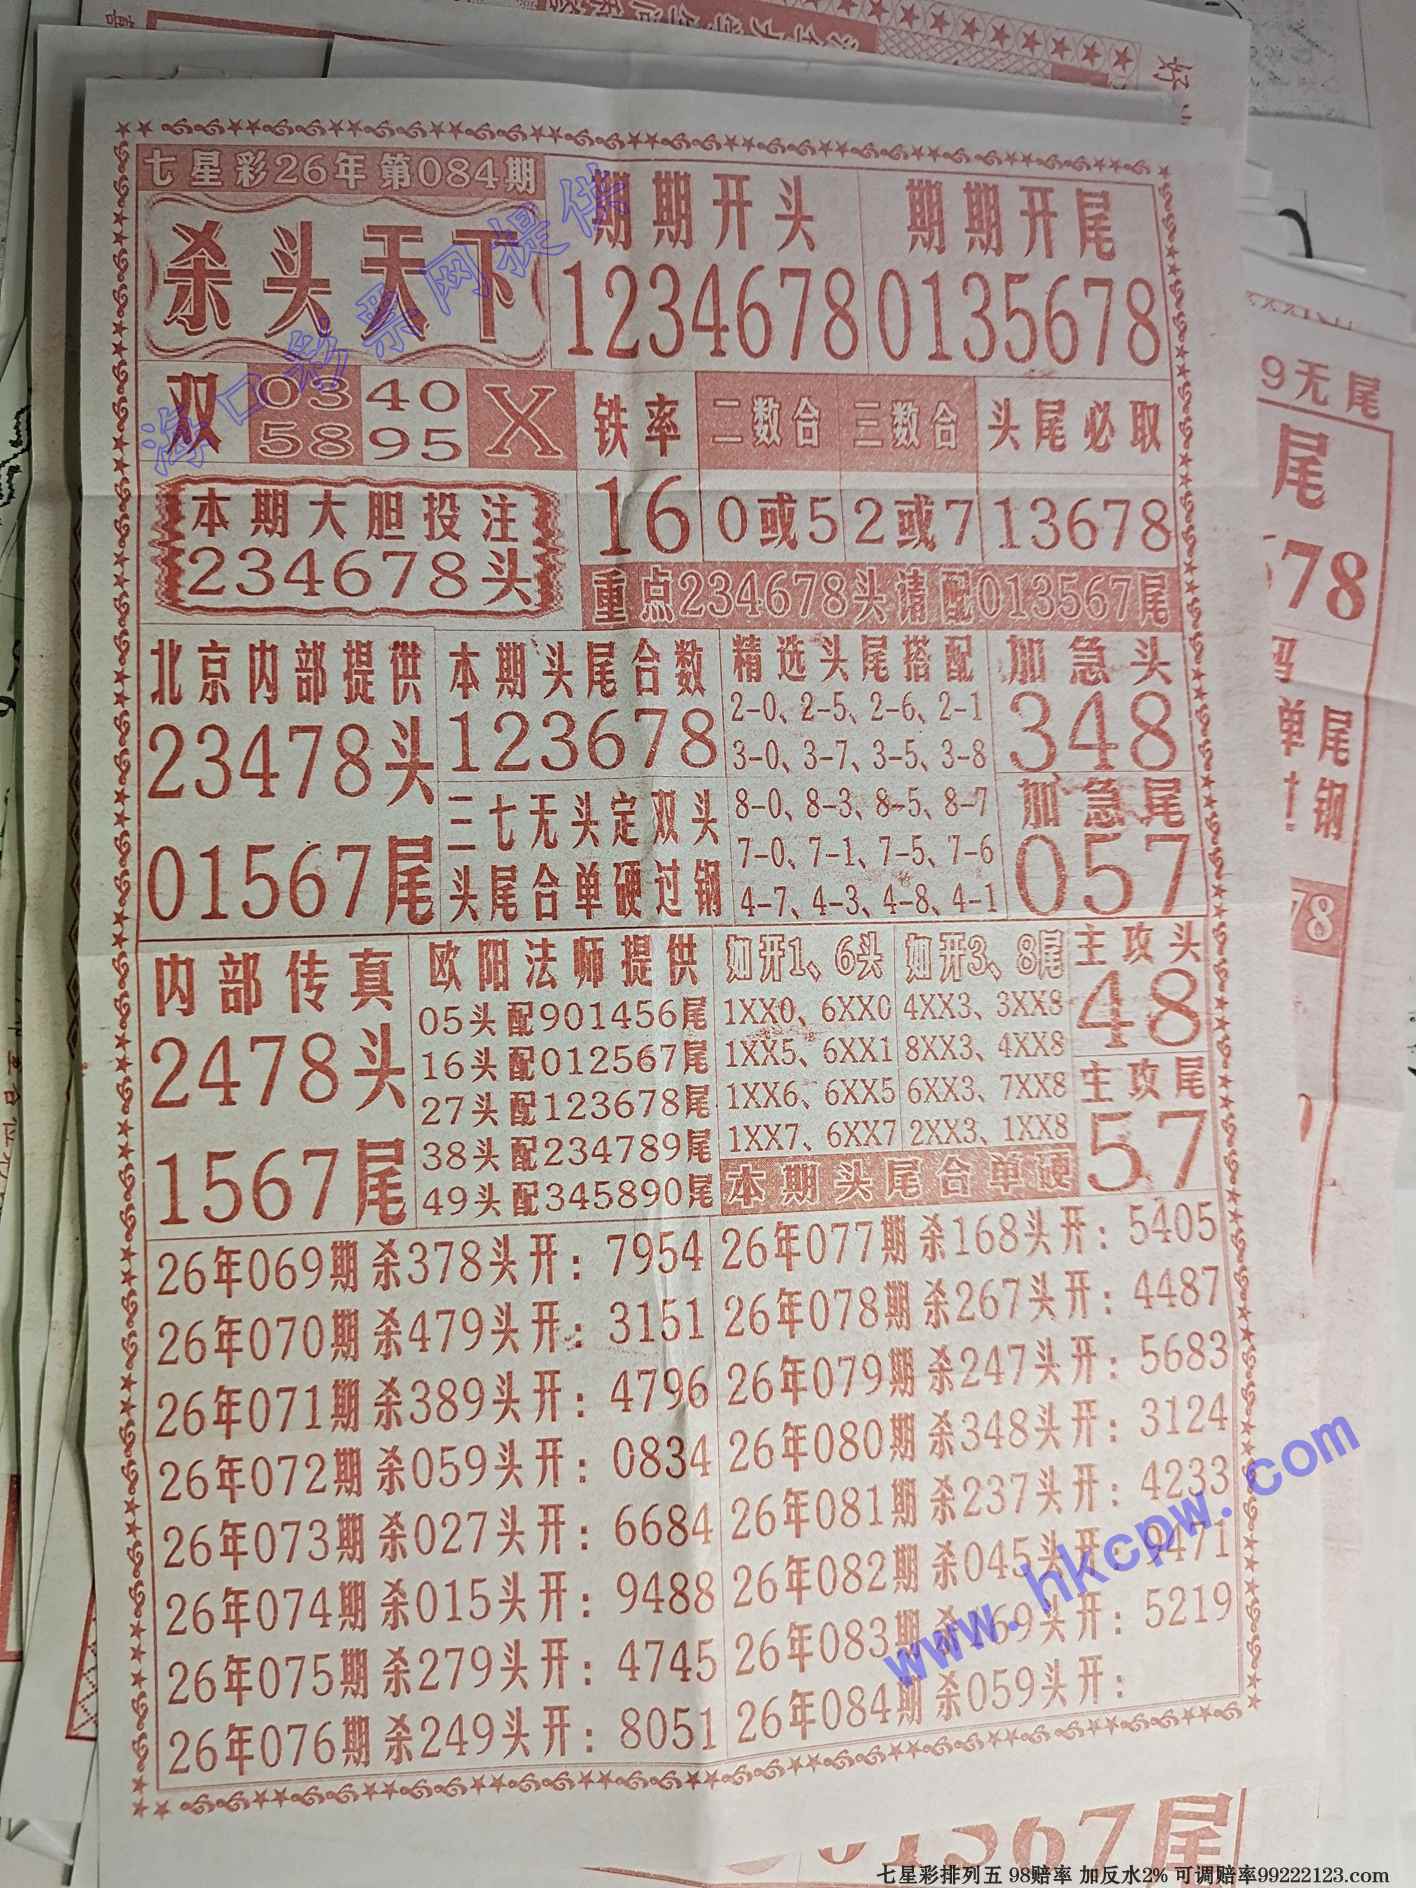 好
七星彩26年第084期
杀头天下
期期开头
1234678
期期开尾
0135678
双
03 40
58 95
X
铁率
16
二数合
0或5
三数合
2或7
头尾必取
13678
本期大胆投注
234678头
重点234678头请配013567尾
北京内部提供
23478头
01567尾
本期头尾合数
123678
三七无头定双头
头尾合单硬过钢
精选头尾搭配
2-0、2-5、2-6、2-1
3-0、3-7、3-5、3-8
8-0、8-3、8-5、8-7
7-0、7-1、7-5、7-6
4-7、4-3、4-8、4-1
加急头
348
加急尾
057
内部传真
2478头
1567尾
欧阳法师提供
05头配901456尾
16头配012567尾
27头配123678尾
38头配234789尾
49头配345890尾
如开1、6头
1XX0、6XX0
1XX5、6XX1
1XX6、6XX5
1XX7、6XX7
如开3、8尾
4XX3、3XX8
8XX3、4XX8
6XX3、7XX8
2XX3、1XX8
本期头尾合单硬
主攻头
48
主攻尾
57
26年069期杀378头开：7954
26年070期杀479头开：3151
26年071期杀389头开：4796
26年072期杀059头开：0834
26年073期杀027头开：6684
26年074期杀015头开：9488
26年075期杀279头开：4745
26年076期杀249头开：8051
26年077期杀168头开：5405
26年078期杀267头开：4487
26年079期杀247头开：5683
26年080期杀348头开：3124
26年081期杀237头开：4233
26年082期杀045头开：9471
26年083期杀169头开：5219
26年084期杀059头开：
海口彩票网提供
www.hkcpw.com
9无尾
尾
78
单尾
钢
78
01367尾
七星彩排列五 98赔率 加反水2% 可调赔率99222123.com